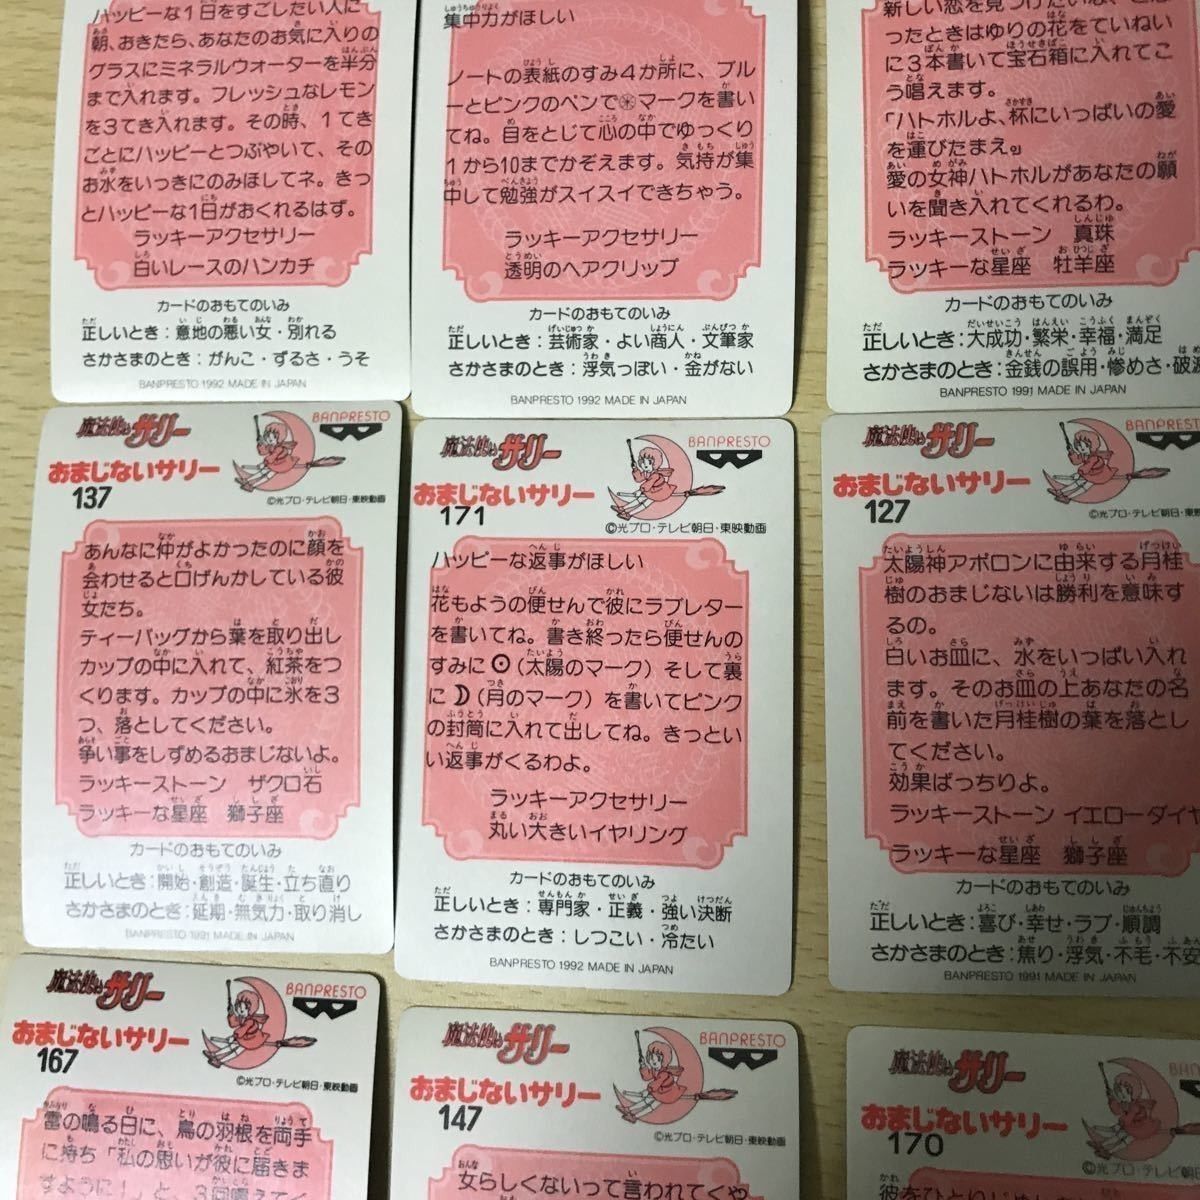 ハッピーな1日をすごしたい人に
朝、おきたら、あなたのお気に入りの
グラスにミネラルウォーターを半分
まで入れます。フレッシュなレモン
を3てき入れます。その時、1てき
ごとにハッピーとつぶやいて、その
お水をいっきにのみほしてネ。きっ
とハッピーな1日がおくれるはず。
ラッキーアクセサリー
白いレースのハンカチ
カードのおもてのいみ
正しいとき：意地の悪い女・別れる
さかさまのとき：がんこ・ずるさ・うそ
BANPRESTO 1992 MADE IN JAPAN
集中力がほしい
ノートの表紙のすみ4か所に、ブル
ーとピンクのペンで㊍マークを書い
てね。目をとじて心の中でゆっくり
1から10までかぞえます。気持が集
中して勉強がスイスイできちゃう。
ラッキーアクセサリー
透明のヘアクリップ
カードのおもてのいみ
正しいとき：芸術家・よい商人・文筆家
さかさまのとき：浮気っぽい・金がない
BANPRESTO 1992 MADE IN JAPAN
新しい恋を見つけたいな、と思
ったときはゆりの花をていねい
に3本書いて宝石箱に入れてこ
う唱えます。
「ハトホルよ、杯にいっぱいの愛
を運びたまえ。」
愛の女神ハトホルがあなたの願
いを聞き入れてくれるわ。
ラッキーストーン 真珠
ラッキーな星座 牡羊座
カードのおもてのいみ
正しいとき：大成功・繁栄・幸福・満足
さかさまのとき：金銭の誤用・惨めさ・破滅
BANPRESTO 1991 MADE IN JAPAN
魔法使いサリー
BANPRESTO
おまじないサリー
137
©光プロ・テレビ朝日・東映動画
あんなに仲がよかったのに顔を
会わせると口げんかしている彼
女たち。
ティーバッグから葉を取り出し
カップの中に入れて、紅茶をつ
くります。カップの中に氷を3
つ、落としてください。
争い事をしずめるおまじないよ。
ラッキーストーン ザクロ石
ラッキーな星座 獅子座
カードのおもてのいみ
正しいとき：開始・創造・誕生・立ち直り
さかさまのとき：延期・無気力・取り消し
BANPRESTO 1991 MADE IN JAPAN
魔法使いサリー
BANPRESTO
おまじないサリー
171
©光プロ・テレビ朝日・東映動画
ハッピーな返事がほしい
花もようの便せんで彼にラブレター
を書いてね。書き終ったら便せんの
すみに☉(太陽のマーク)そして裏
に☽(月のマーク)を書いてピンク
の封筒に入れて出してね。きっとい
い返事がくるわよ。
ラッキーアクセサリー
丸い大きいイヤリング
カードのおもてのいみ
正しいとき：専門家・正義・強い決断
さかさまのとき：しつこい・冷たい
BANPRESTO 1992 MADE IN JAPAN
魔法使いサリー
BANPRESTO
おまじないサリー
127
©光プロ・テレビ朝日・東映
太陽神アポロンに由来する月桂
樹のおまじないは勝利を意味す
るの。
白いお皿に、水をいっぱい入れ
ます。そのお皿の上あなたの名
前を書いた月桂樹の葉を落とし
てください。
効果ばっちりよ。
ラッキーストーン イエローダイヤ
ラッキーな星座 獅子座
カードのおもてのいみ
正しいとき：喜び・幸せ・ラブ・順調
さかさまのとき：焦り・浮気・不毛・不安
BANPRESTO 1991 MADE IN JAPAN
魔法使いサリー
BANPRESTO
おまじないサリー
167
©光プロ・テレビ朝日・東映動画
雷の鳴る日に、鳥の羽根を両手
に持ち「私の思いが彼に届きま
すように！」と、3回唱えてく
魔法使いサリー
BANPRESTO
おまじないサリー
147
©光プロ・テレビ朝日・東映動画
女らしくないって言われてくや
魔法使いサリー
BANP
おまじないサリー
170
©光プロ・テレビ朝日
彼をひとりい